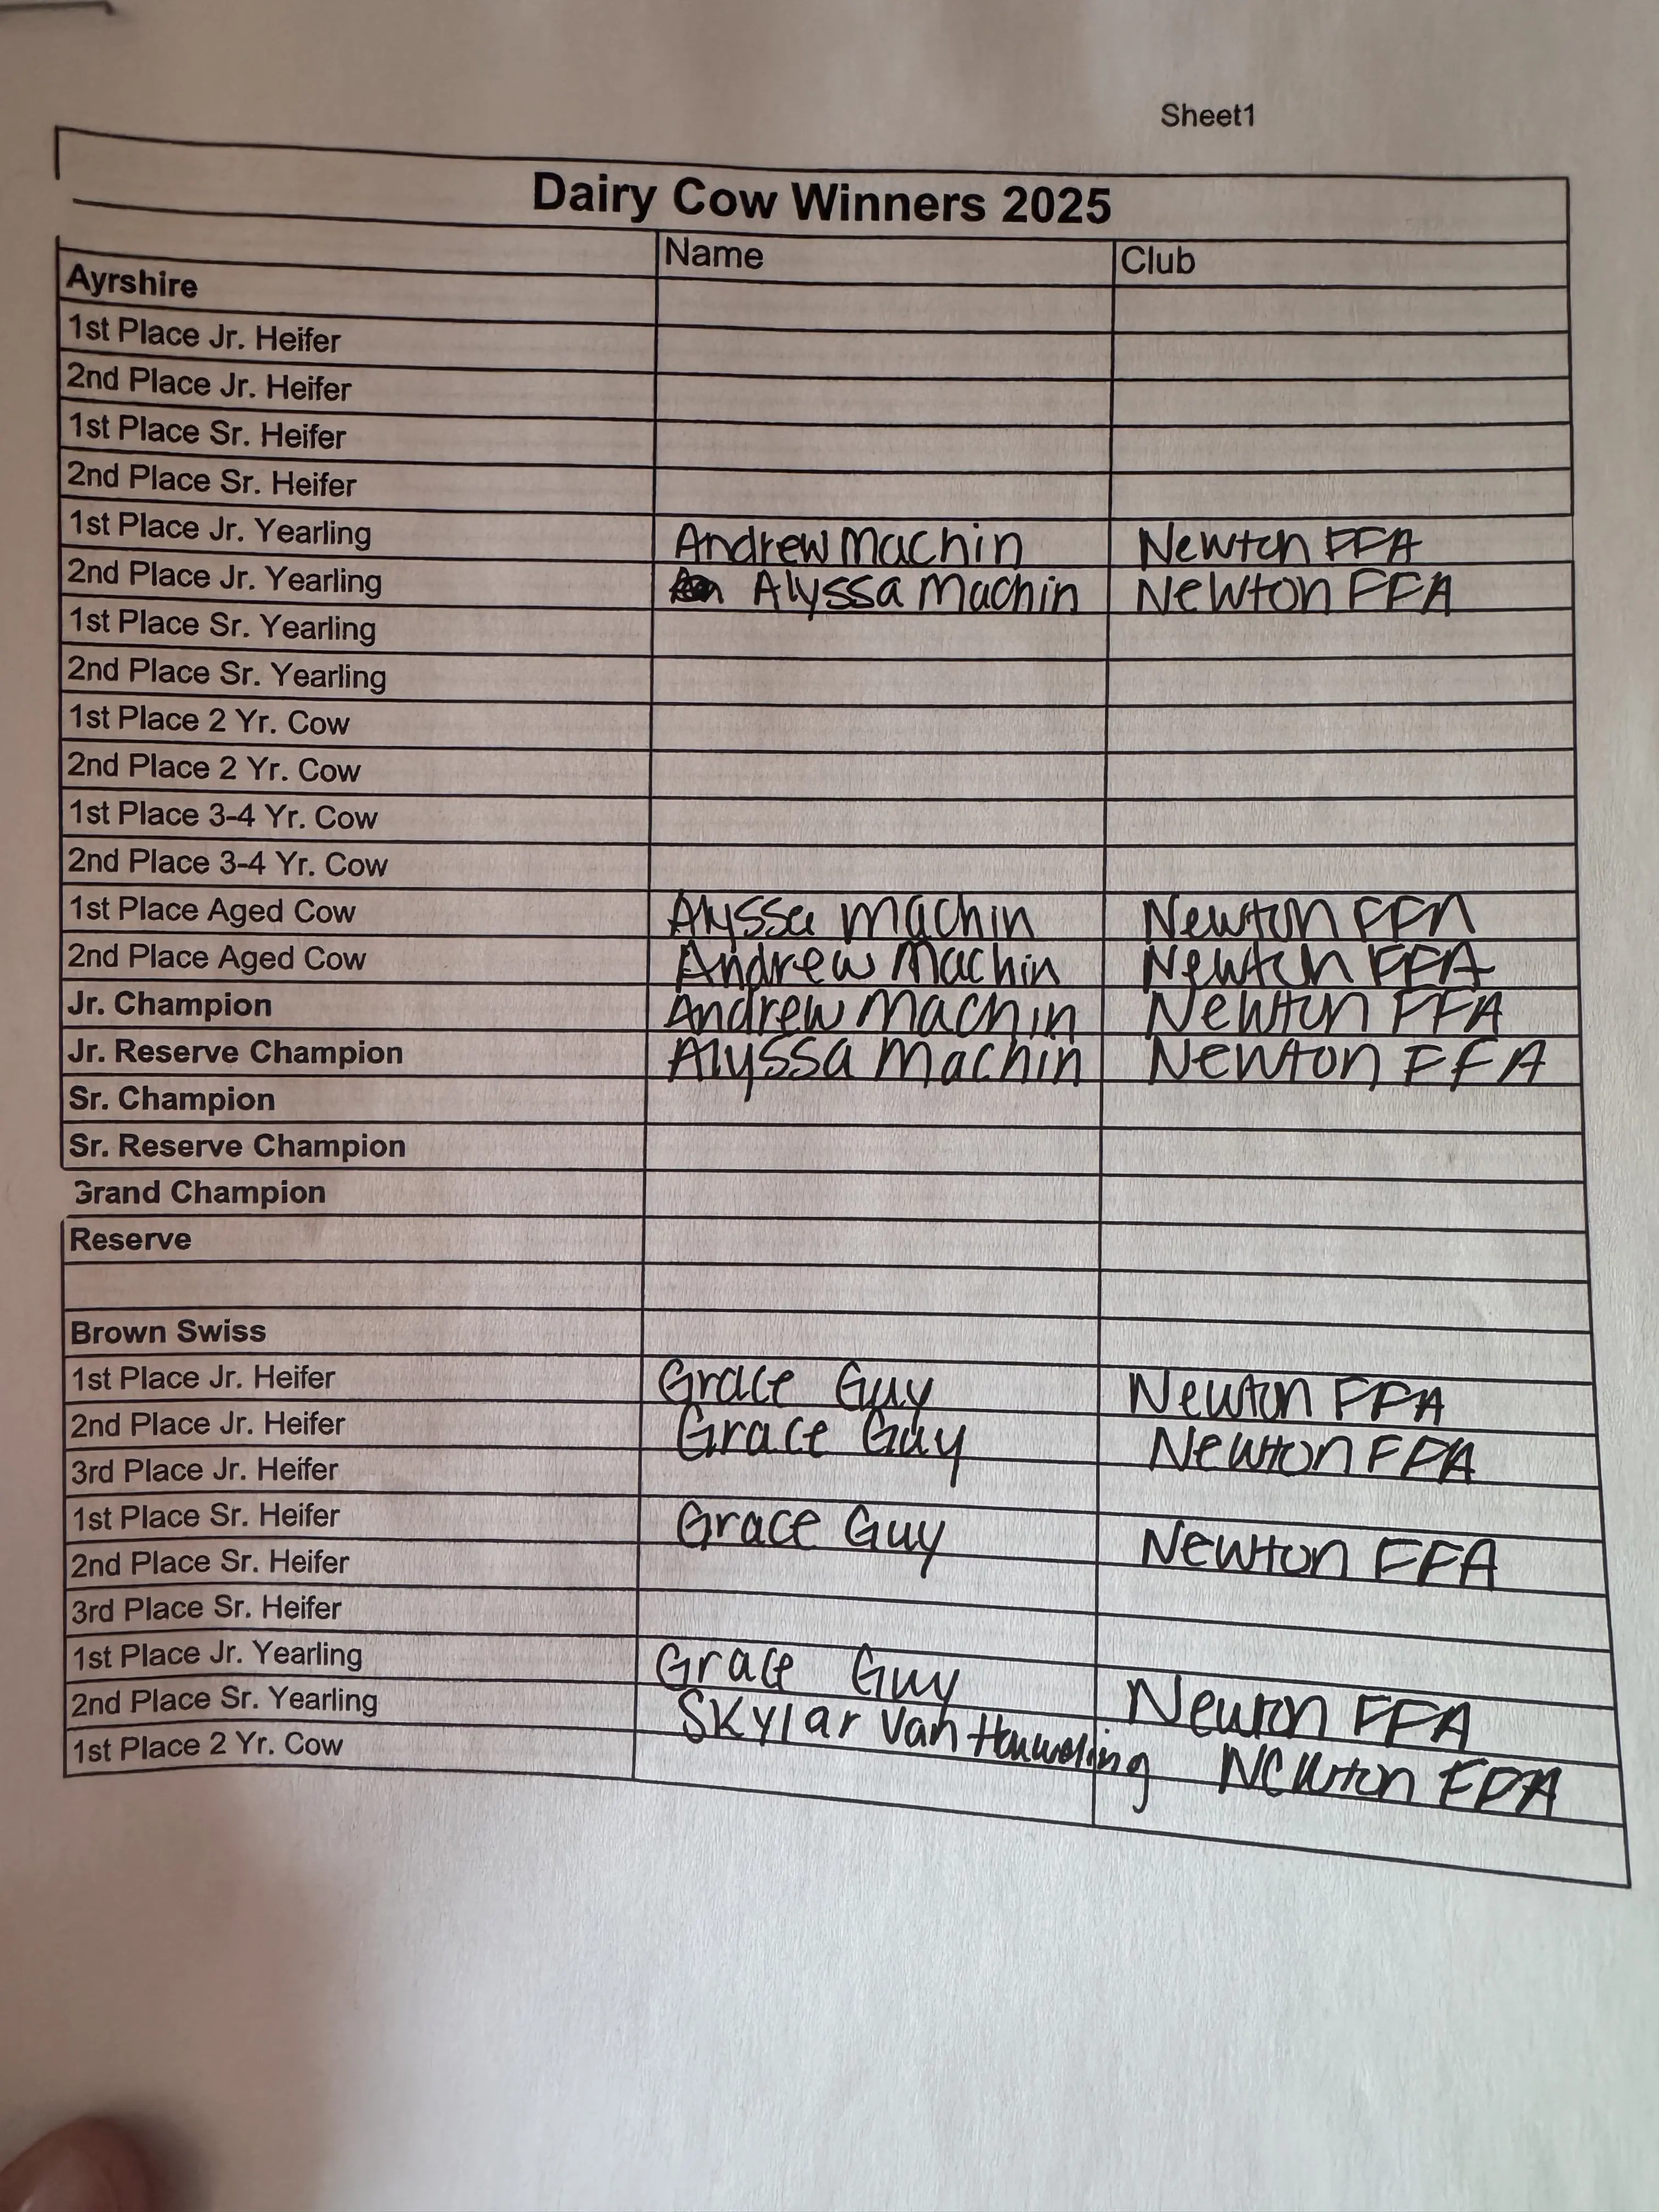 Sheet1
Dairy Cow Winners 2025
Name Club
Ayrshire
1st Place Jr. Heifer
2nd Place Jr. Heifer
1st Place Sr. Heifer
2nd Place Sr. Heifer
1st Place Jr. Yearling Andrew Machin Newton FFA
2nd Place Jr. Yearling Alyssa Machin Newton FFA
1st Place Sr. Yearling
2nd Place Sr. Yearling
1st Place 2 Yr. Cow
2nd Place 2 Yr. Cow
1st Place 3-4 Yr. Cow
2nd Place 3-4 Yr. Cow
1st Place Aged Cow Alyssa Machin Newton FFA
2nd Place Aged Cow Andrew Machin Newton FFA
Jr. Champion Andrew Machin Newton FFA
Jr. Reserve Champion Alyssa Machin Newton FFA
Sr. Champion
Sr. Reserve Champion
Grand Champion
Reserve
Brown Swiss
1st Place Jr. Heifer Grace Guy Newton FFA
2nd Place Jr. Heifer Grace Guy Newton FFA
3rd Place Jr. Heifer
1st Place Sr. Heifer Grace Guy Newton FFA
2nd Place Sr. Heifer
3rd Place Sr. Heifer
1st Place Jr. Yearling Grace Guy Newton FFA
2nd Place Sr. Yearling Skylar Van Houweling Newton FFA
1st Place 2 Yr. Cow